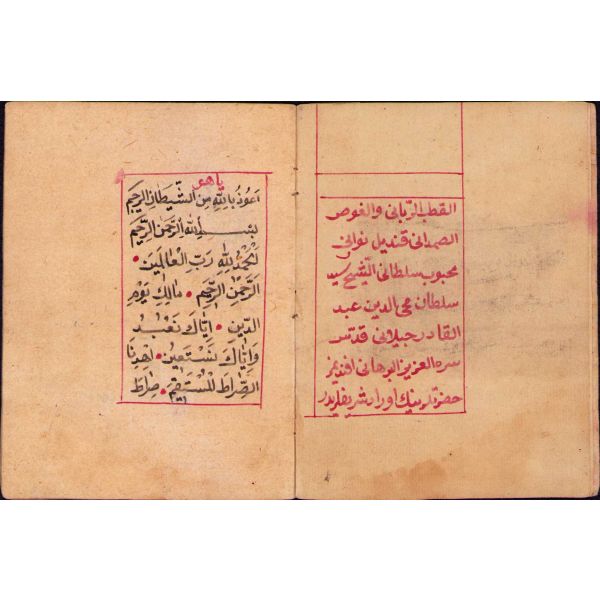 القطب الرّبانى والغوص
الصمدانى قنديل نوانى
محبوب سلطانى الشيخ سيد
سلطان محى الدين عبد
القادر جيلانى قدس
سره العزيز البرهانى افنديمز
حضرتلرينك اوراد شريفلريدر
ياهو
اَعُوذُ بِاللهِ مِنَ الشَّيْطَانِ الرَّجِيمِ
بِسْمِ اللهِ الرَّحْمٰنِ الرَّحِيمِ
اَلْحَمْدُ لِلهِ رَبِّ الْعَالَمِينَ •
اَلرَّحْمٰنِ الرَّحِيمِ • مَالِكِ يَوْمِ
الدِّينِ • اِيَّاكَ نَعْبُدُ
وَاِيَّاكَ نَسْتَعِينُ • اِهْدِنَا
الصِّرَاطَ الْمُسْتَقِيمَ • صِرَاطَ